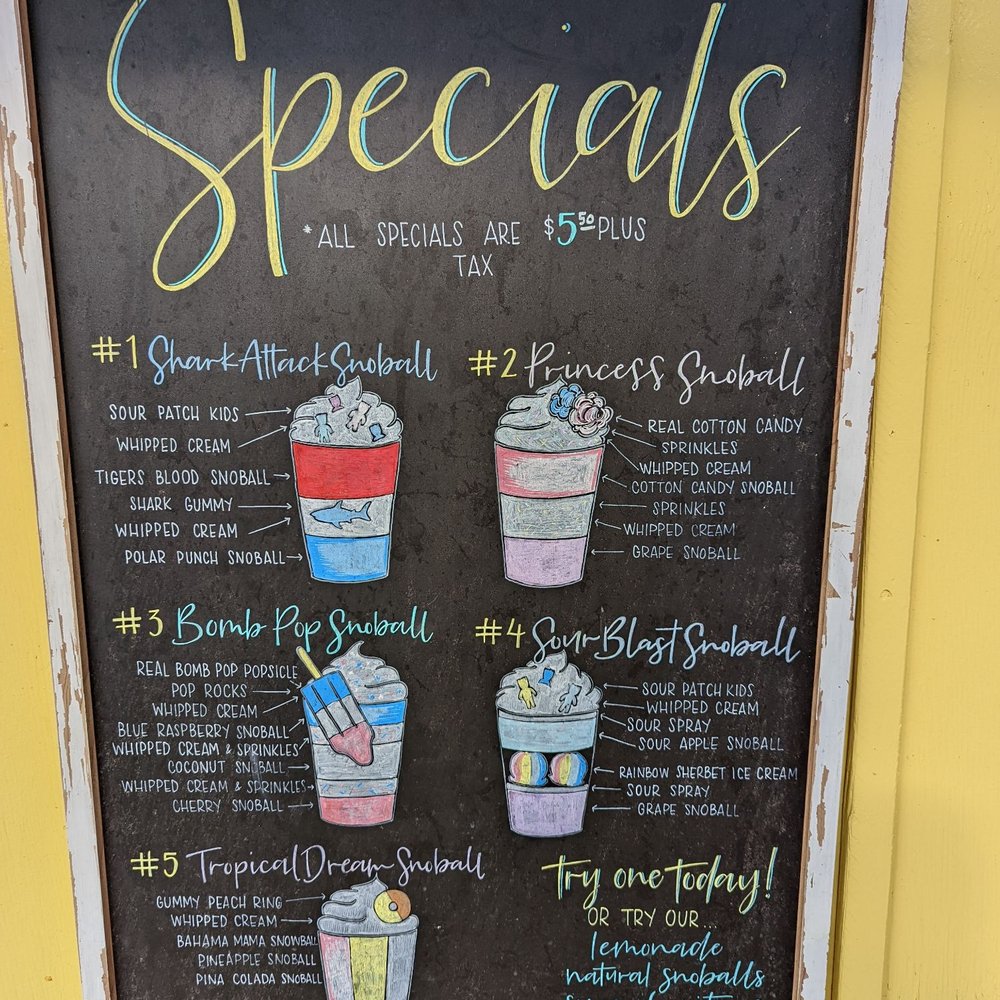 Specials
*ALL SPECIALS ARE $5.50 PLUS
TAX
#1 Shark Attack Snoball
SOUR PATCH KIDS
WHIPPED CREAM
TIGERS BLOOD SNOBALL
SHARK GUMMY
WHIPPED CREAM
POLAR PUNCH SNOBALL
#2 Princess Snoball
REAL COTTON CANDY
SPRINKLES
WHIPPED CREAM
COTTON CANDY SNOBALL
SPRINKLES
WHIPPED CREAM
GRAPE SNOBALL
#3 Bomb Pop Snoball
REAL BOMB POP POPSICLE
POP ROCKS
WHIPPED CREAM
BLUE RASPBERRY SNOBALL
WHIPPED CREAM & SPRINKLES
COCONUT SNOBALL
WHIPPED CREAM & SPRINKLES
CHERRY SNOBALL
#4 Sour Blast Snoball
SOUR PATCH KIDS
WHIPPED CREAM
SOUR SPRAY
SOUR APPLE SNOBALL
RAINBOW SHERBET ICE CREAM
SOUR SPRAY
GRAPE SNOBALL
#5 Tropical Dream Snoball
GUMMY PEACH RING
WHIPPED CREAM
BAHAMA MAMA SNOWBALL
PINEAPPLE SNOBALL
PINA COLADA SNOBALL
Try one today!
OR TRY OUR...
lemonade
natural snoballs